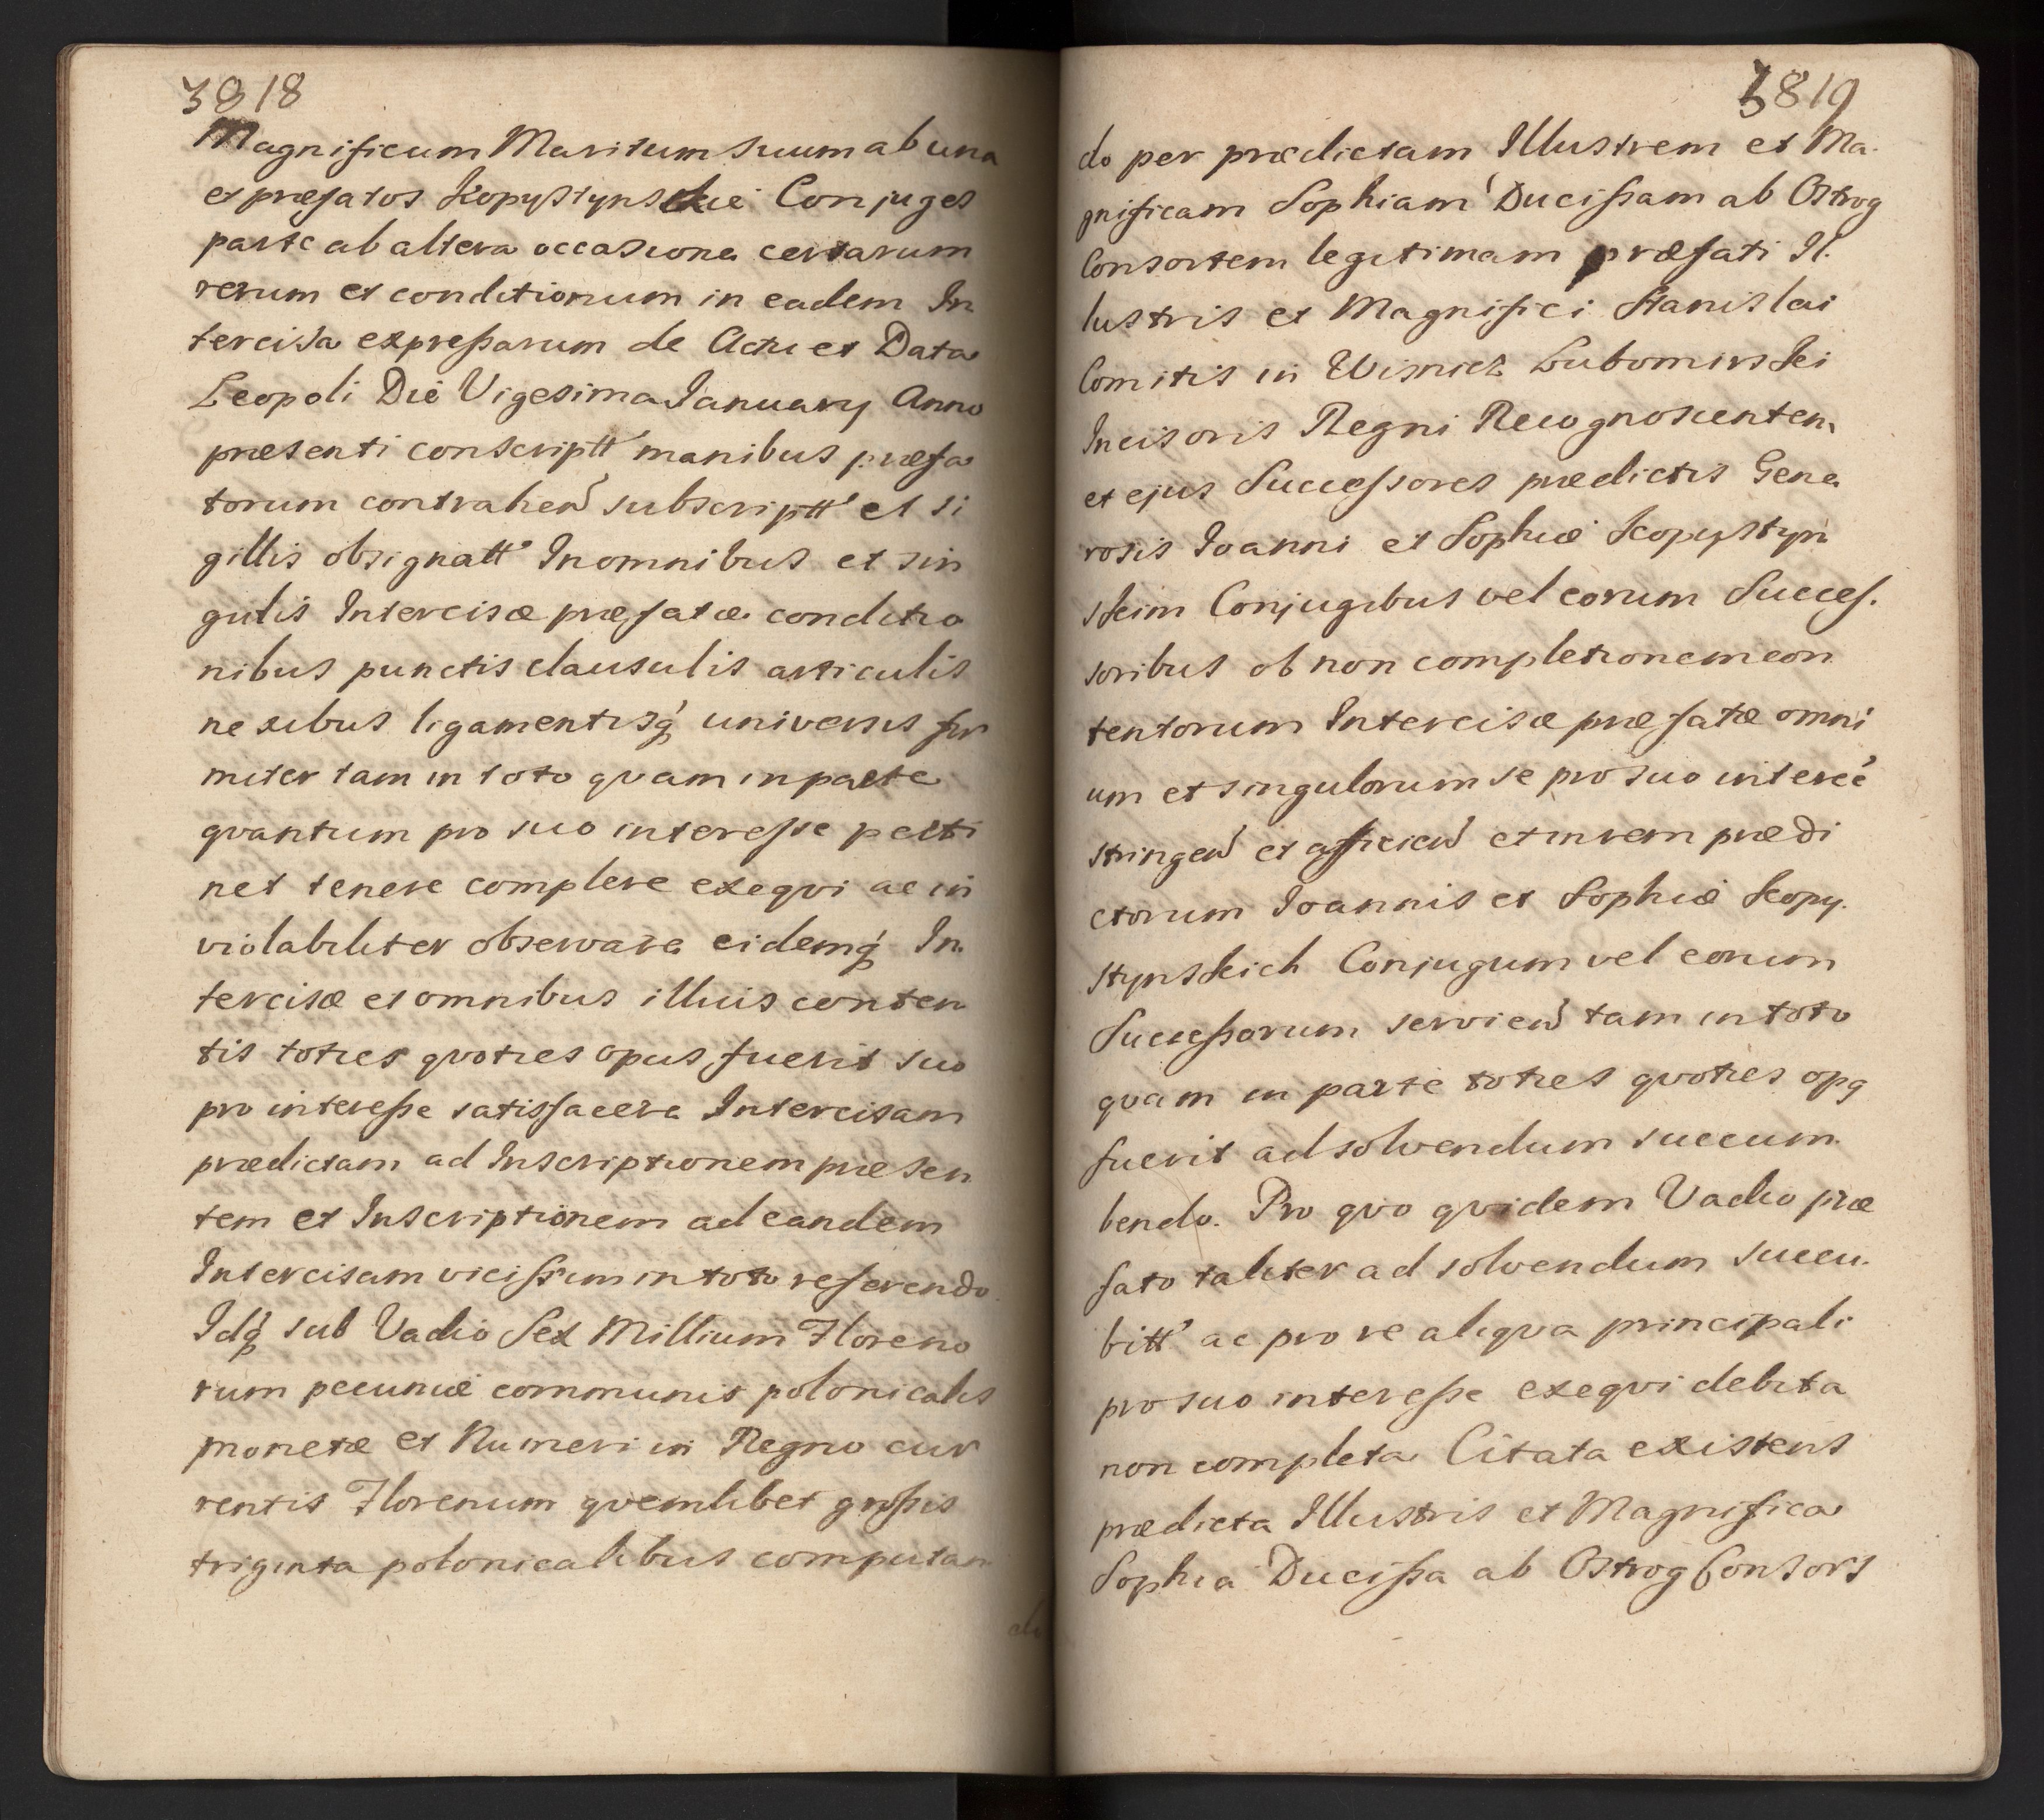 3818
Magnificum Maritum suum ab una
et præfatos Kopystynskie Conjuges
parte ab altera occasione certarum
rerum et conditionum in eadem In
tercisa expressarum de Actu et Data
Leopoli Die Vigesima January Anno
præsenti conscriptt' manibus præfa
torum contrahen subscriptt' et si
gillis obsignatt' In omnibus et sin
gulis Intercisæ præfatæ conditio
nibus punctis clausulis articulis
nexibus ligamentisq́ universis fir
miter tam in toto qvam in parte
qvantum pro suo interesse perti
net tenere complere exeqvi ac in
violabiliter observare eidemq́ In
tercisæ et omnibus illius conten
tis toties qvoties opus fuerit suo
pro interesse satisfacere Intercisam
prædictam ad Inscriptionem præsen
tem et Inscriptionem ad eandem
Intercisam vicissim in toto referendo
Idq́ sub Vadio Sex Millium Floreno
rum pecuniæ communis polonicalis
monetæ et Numeri in Regno cur
rentis Florenum qvemlibet grossis
triginta polonicalibus computan
do
3819
do per prædictam Illustrem et Ma
gnificam Sophiam Ducissam ab Ostrog
Consortem legitimam præfati Il
lustris et Magnifici Stanislai
Comitis in Wisnicz Lubomirski
Incisoris Regni Recognoscentem
et ejus Successores prædictis Gene
rosis Joanni et Sophiæ Kopystyn
skim Conjugibus vel eorum Succes.
soribus ob non completionem con
tentorum Intercisæ præfatæ omni
um et singulorum se pro suo interéé
stringen et afficien et in rem prædi
ctorum Joannis et Sophiæ Kopy.
stynskich Conjugum vel eorum
Successorum servien tam in toto
qvam in parte toties qvoties opq
fuerit ad solvendum succum
bendo. Pro qvo qvidem Vadio præ
fato taliter ad solvendum succu.
bitt' ac pro re aliqva principali
pro suo interesse exeqvi debita
non completa Citata existens
prædicta Illustris et Magnifica
Sophia Ducissa ab Ostrog Consors